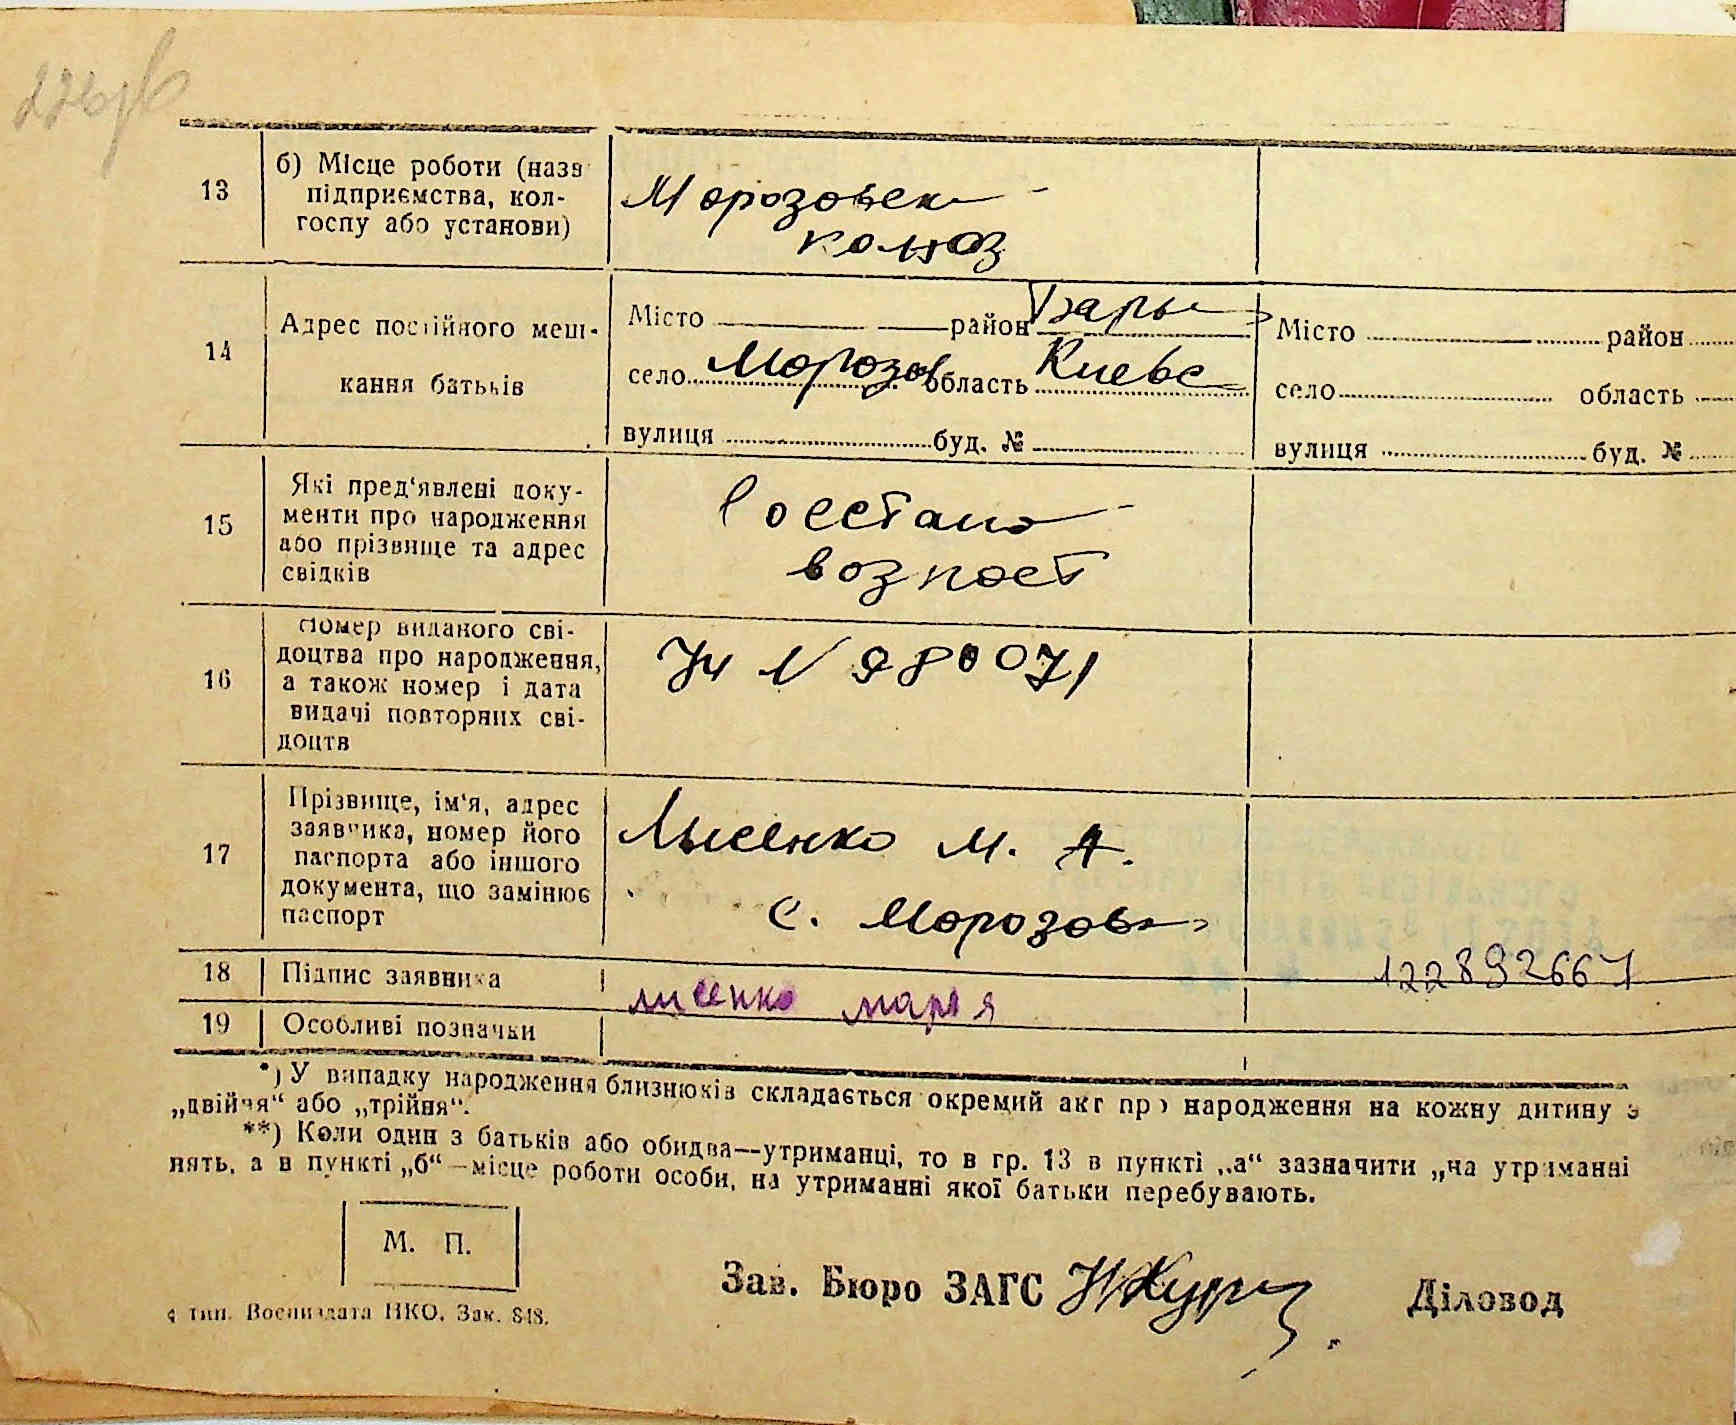 13
б) Місце роботи (назв
підприємства, кол-
госпу або установи)
Морозовск
колхоз
14
Адрес постійного меш-
кання батьків
Місто район Барыш
село Морозов область Киевс
вулиця буд. №
Місто район
село область
вулиця буд. №
15
Які пред'явлені доку-
менти про народження
або прізвище та адрес
свідків
возност
16
Номер виданого сві-
доцтва про народження,
а також номер і дата
видачі повторних сві-
доцтв
УЧ N 980071
17
Прізвище, ім'я, адрес
заявника, номер його
паспорта або іншого
документа, що замінює
паспорт
Лысенко М. А.
с. Морозовк
18 Підпис заявника
лисенко марія
122892667
19 Особливі позначки
*) У випадку народження близнюків складається окремий акт про народження на кожну дитину з
„двійня“ або „трійня“.
**) Коли один з батьків або обидва—утриманці, то в гр. 13 в пункті „а“ зазначити „на утриманні
нять, а в пункті „б“—місце роботи особи, на утриманні якої батьки перебувають.
М. П.
Зав. Бюро ЗАГС
Діловод
тип. Воениздата НКО. Зак. 848.